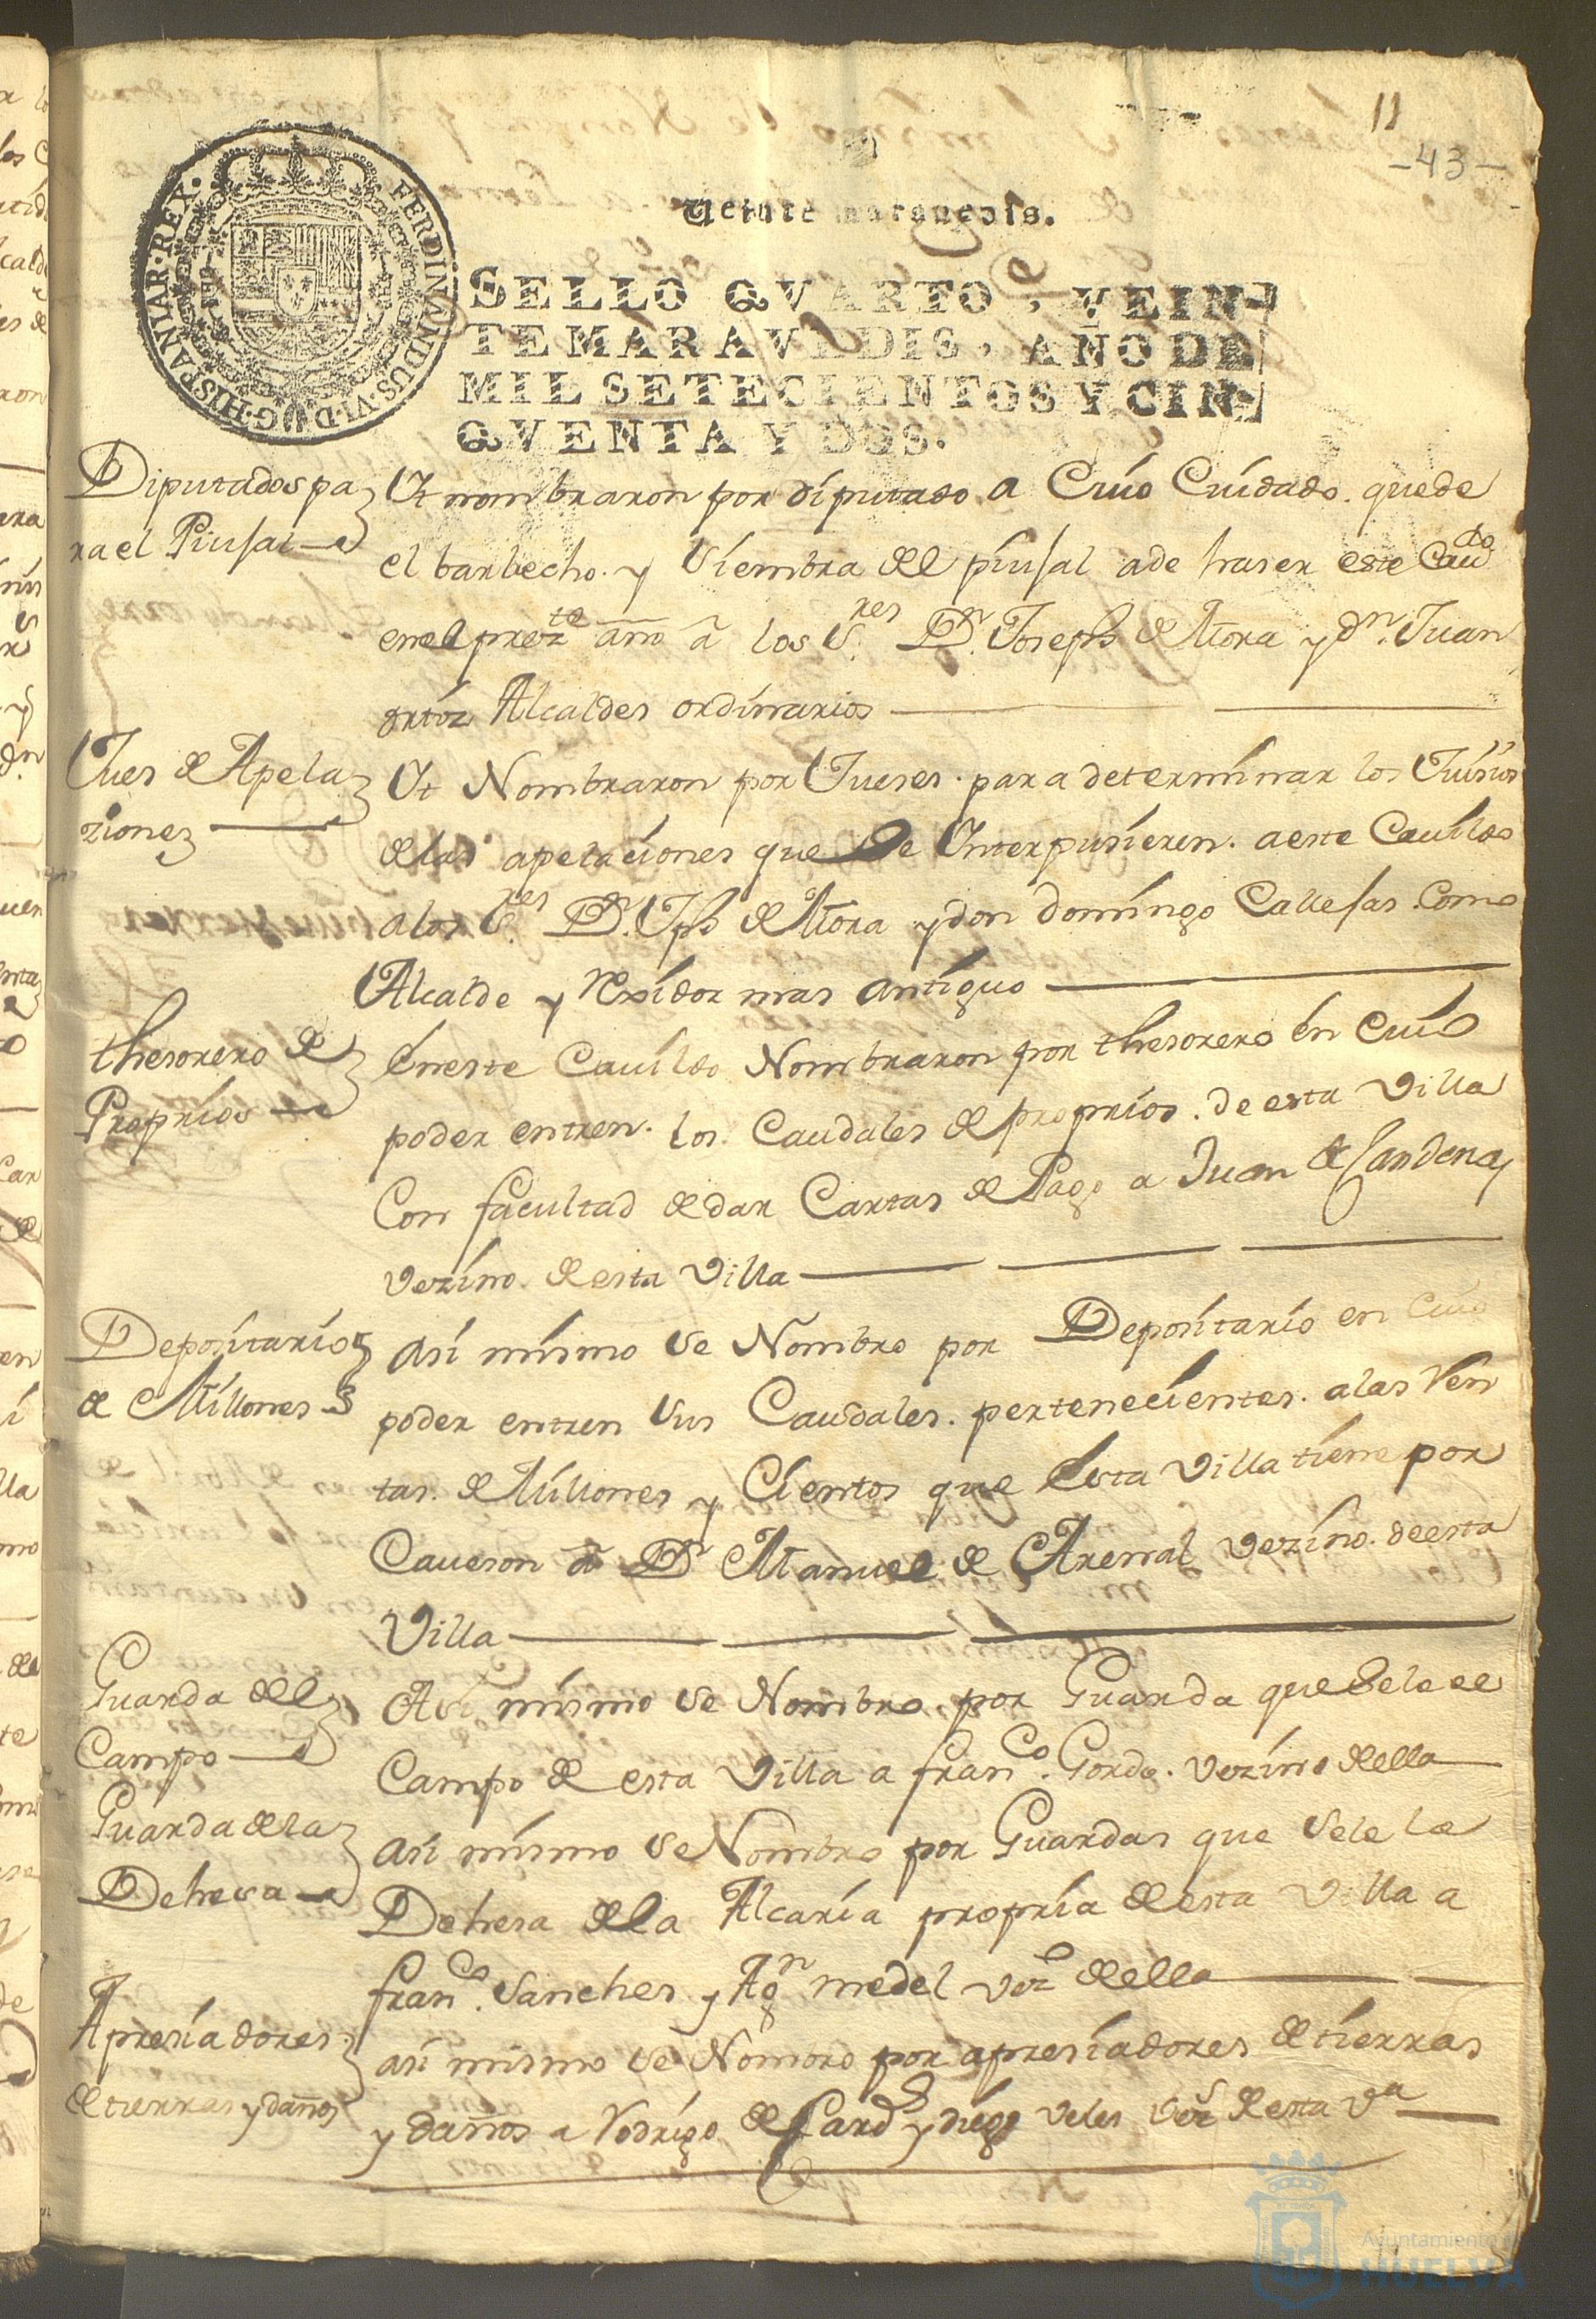 11
-43-
Veinte marauedis.
FERDINANDUS·VI·D·G·HISPANIAR·REX·
SELLO QVARTO, VEIN-
TE MARAVEDIS, AÑO DE
MIL SETECIENTOS Y CIN-
QVENTA Y DOS.
Diputados pa
ra el Piusal
Yt nombraron por diputado a Cuío Cuídado. que de
el barbecho. y Siembra del píusal a de haser este Cau.do
en el prez.te año a los S.res D.n Joseph de Mora y dn. Juan
ortíz Alcaldes ordinarios
Jues de Apela
ziones
Yt Nombraron por Jueses. para determinar los Juísios
de las apelacíones que se Interpusíeren. a este Cauíldo
a los S.res D.n Jph de Mora y don domíngo Callesas. Como
Alcalde y rexídor mas antíguo
thesorero de
Propríos
en este Cauíldo Nombraron por thesorero en Cuío
poder entren. los. Caudales de propríos. de esta Villa
Con facultad de dar Cartas de Pago a Juan de Sandena
vezíno. de esta Villa
Deposítarío
de Míllones
Así mísmo se Nombro por Deposítarío en Cuio
poder entren sus Caudales. pertenecíentes. a las Ren
tas. de Míllones y Cíentos que esta Villa tíene por
Caueson a D.n Manuel de Arenal vezíno. de esta
Villa
Guarda del
Campo
Así mísmo se Nombro. por Guarda que Sele el
Campo de esta Villa a fran.co Gordo. vezíno de ella
Guarda de la
Dehesa
así mísmo se Nombro por Guardas que Sele la
Dehesa de la Alcaría propría de esta Villa a
fran.co Sanches y Ag.n medel vez.s de ella
Apresíadores
de tierras y daños
así mismo se Nombro por apresíadores de tíerras
y daños a Rodrígo de y díego veles vez.s de esta V.a
Ayuntamiento de
HUELVA